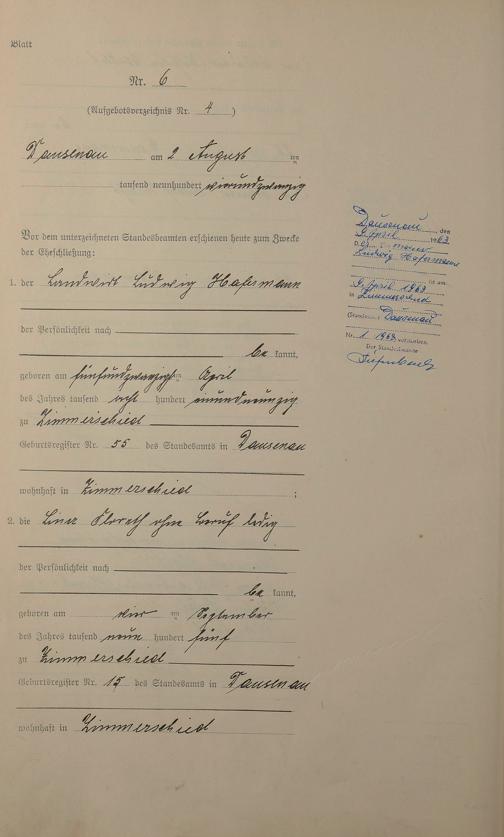 Blatt
Nr. 6
(Aufgebotsverzeichnis Nr. 4)
Dausenau am 2 August ten
tausend neunhundert vierundzwanzig
Vor dem unterzeichneten Standesbeamten erschienen heute zum Zwecke
der Eheschließung:
1. der Landwirt Ludwig Hafermann
der Persönlichkeit nach
be kannt,
geboren am fünfundzwanzigsten April
des Jahres tausend acht hundert neunundneunzig
zu Zimmerschied
Geburtsregister Nr. 55 des Standesamts in Dausenau
wohnhaft in Zimmerschied ;
2. die Lina Florath ohne Beruf ledig
der Persönlichkeit nach
be kannt,
geboren am vier ten September
des Jahres tausend neun hundert fünf
zu Zimmerschied
Geburtsregister Nr. 15 des Standesamts in Dausenau
wohnhaft in Zimmerschied
Dausenau, den
9. April 1963
Ludwig Hafermann
ist am
9. April 1963
in Zimmerschied
(Standesamt Dausenau
Nr. 1 1963 verstorben.
Der Standesbeamte